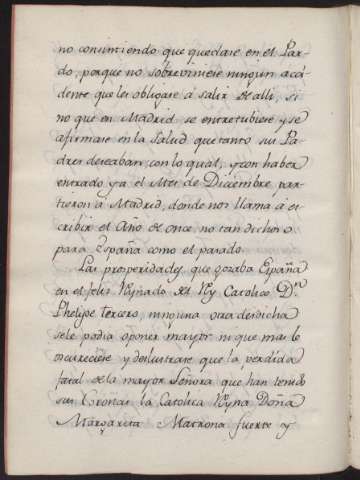 no consintiendo que quedase en el Par-
do, porque no sobreviniese ningun acci-
dente que les obligase á salir de alli, si
no que en Madrid se entretubiese y se
afirmase en la Salud que tanto sus Pa-
dres deseaban con lo qual, y con haber
entrado ya el Mes de Diciembre par-
tieron á Madrid, donde nos llama á es-
cribir el Año de once, no tan dichoso
para España como el pasado.
Las prosperidades que gozaba España
en el feliz Reynado del Rey Catolico Dn.
Phelipe tercero, ninguna otra desdicha
se le podia oponer mayor ni que mas lo
escureciese y deslustrase que la perdida
fatal de la mayor Señora que han tenido
sus Coronas la Catolica Reyna Doña
Margarita Matrona fuerte y